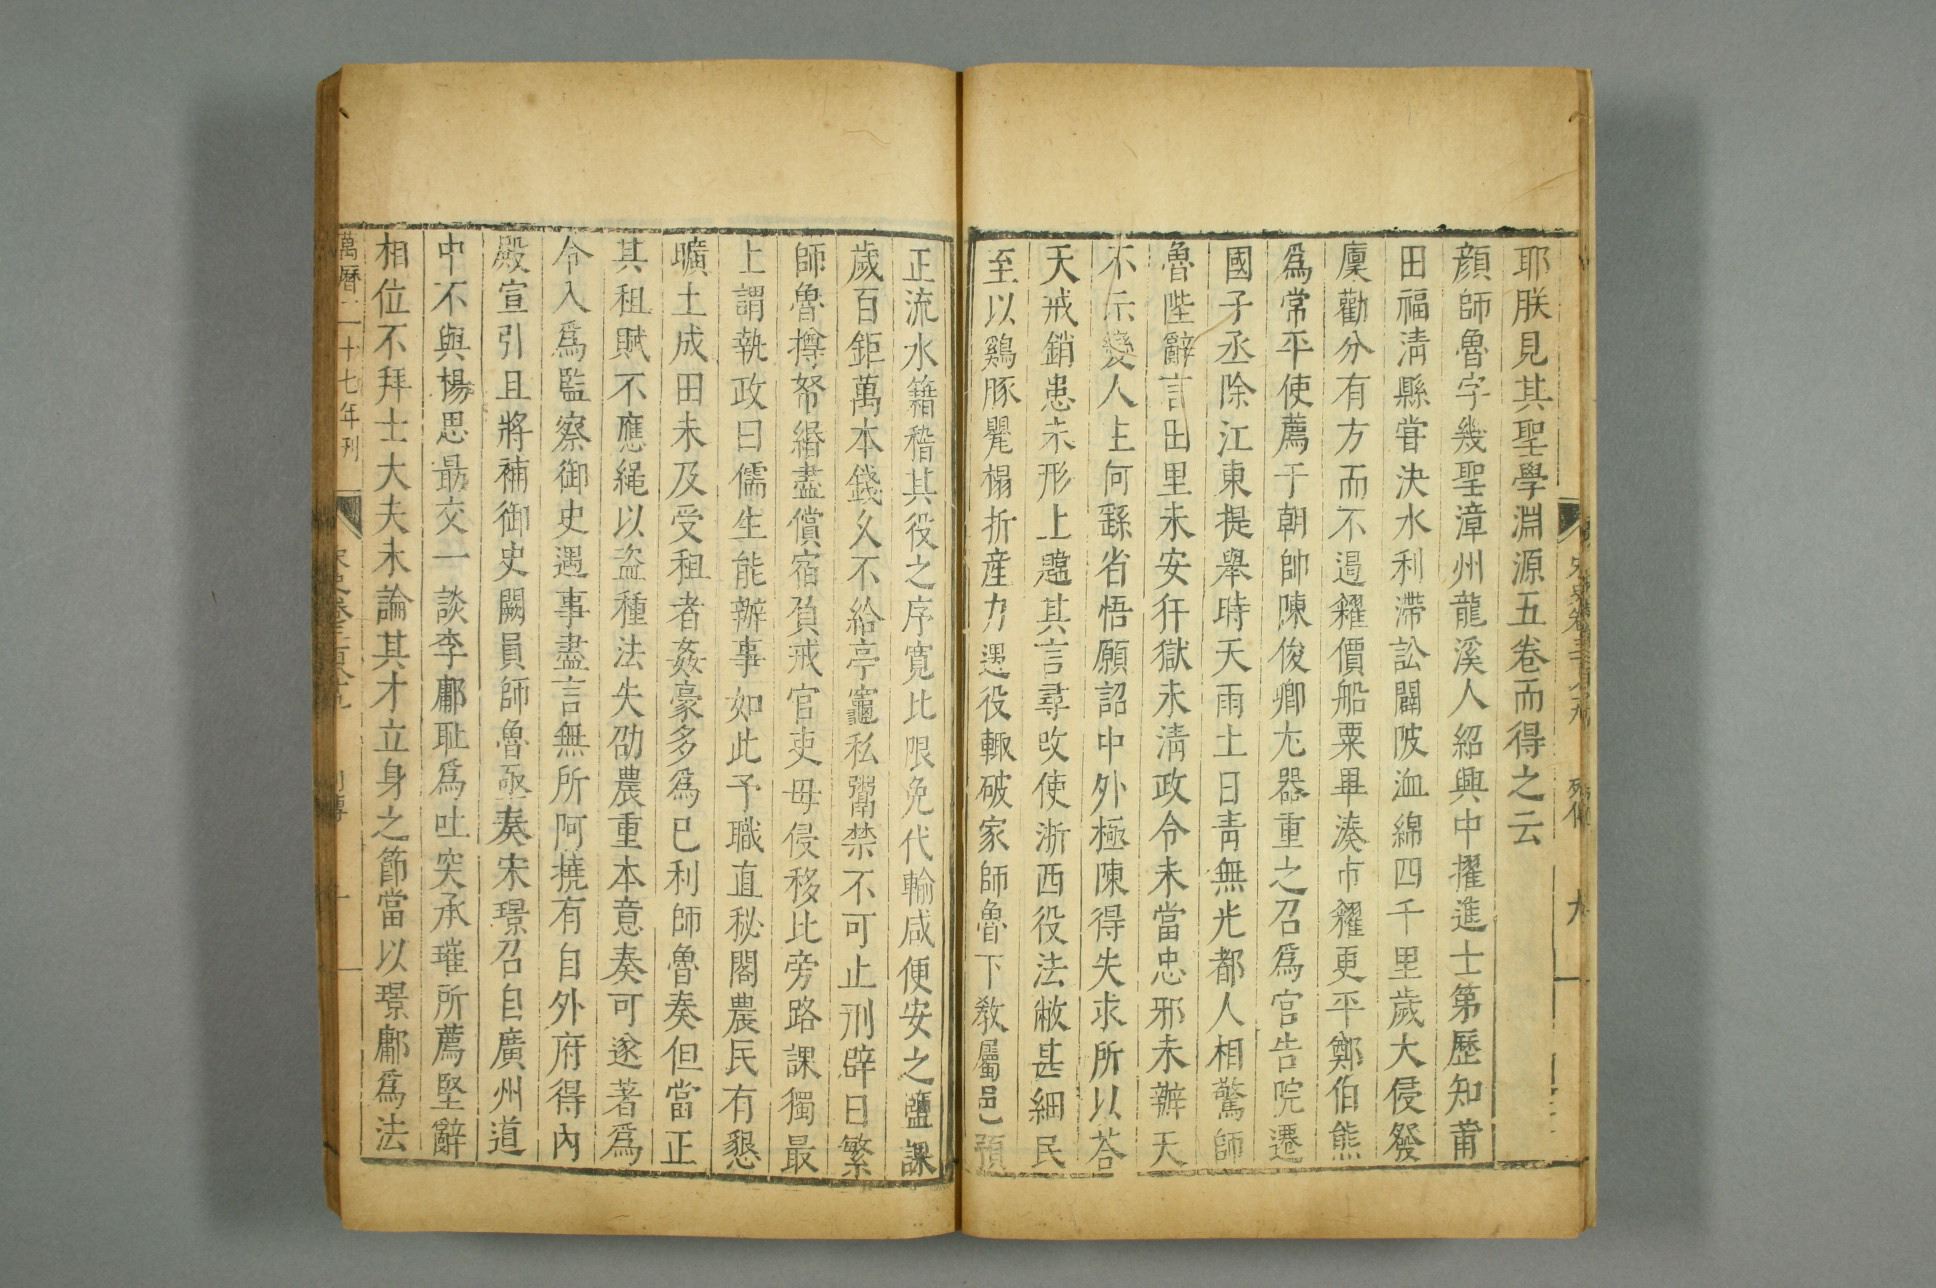 耶朕見其聖學淵源五卷而得之云
顏師魯字幾聖漳州龍溪人紹興中擢進士第歷知莆
田福清縣甞決水利滯訟闢陂洫綿四千里歲大侵發
廩勸分有方而不遏糴價船粟畢湊市糴更平鄭伯熊
爲常平使薦于朝帥陳俊卿尤器重之召爲官告院遷
國子丞除江東提舉時天雨土日青無光都人相驚師
魯陛辭言田里未安犴獄未清政令未當忠邪未辨天
不示變人主何繇省悟願詔中外極陳得失求所以荅
天戒銷患未形上韙其言尋改使浙西役法敝甚細民
至以鷄豚罷榻折産力遇役輙破家師魯下教屬邑預
正流水籍稽其役之序寛比限免代輸咸便安之鹽課
歲百鉅萬本錢久不給亭竈私鬻禁不可止刑辟日繁
師魯撙帑緡盡償宿負戒官吏毋侵移比旁路課獨最
上謂執政曰儒生能辦事如此予職直秘閣農民有懇
曠土成田未及受租者姦豪多爲已利師魯奏但當正
其租賦不應繩以盗種法失劭農重本意奏可遂著爲
令入爲監察御史遇事盡言無所阿撓有自外府得內
殿宣引且將補御史闕員師魯亟奏宋璟召自廣州道
中不與楊思最交一談李鄘耻爲吐突承璀所薦堅辭
相位不拜士大夫未論其才立身之節當以璟鄘爲法
萬曆二十七年刊
宋史卷三百八十九
列傳
十
宋史卷三百八十九
列傳
九